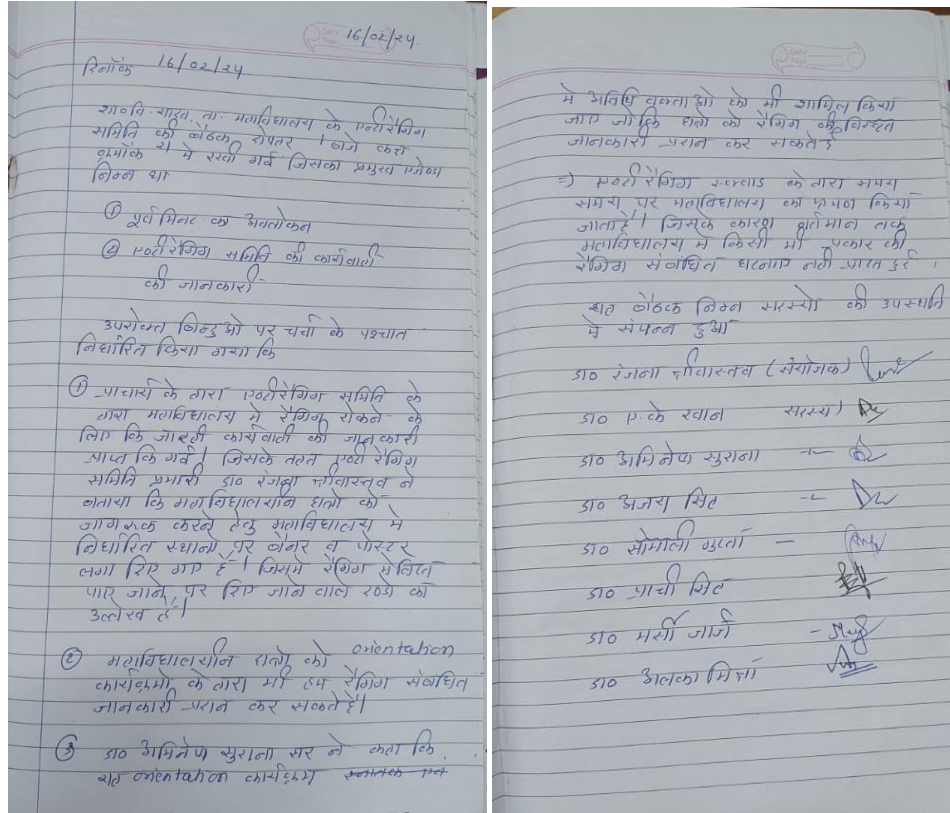 Date 16/02/24.
Page
दिनाँक 16/02/24
शा०वि. याइव. ता. महाविद्यालय के एन्टीरैगिंग
समिति की बैठक दोपहर 1 बजे कक्ष
क्रमाँक में रखी गई जिसका प्रमुख एजेण्डा
निम्न था
① पूर्व मिनट का अवलोकन
② एण्टीरैगिंग समिति की कार्यवाही
की जानकारी
उपरोक्त बिन्दुओ पर चर्चा के पश्चात
निर्धारित किया गया कि
① प्राचार्य के द्वारा एण्टीरैगिंग समिति के
द्वारा महाविद्यालय मे रैगिंग रोकने के
लिए कि जा रही कार्यवाही की जानकारी
प्राप्त कि गई। जिसके तहत एण्टी रैगिंग
समिति प्रभारी डा० रंजना श्रीवास्तव ने
बताया कि महाविद्यालयीन छात्रो को
जागरुक करने हेतु महाविद्यालय मे
निर्धारित स्थानो पर बैनर व पोस्टर
लगा दिए गए है। जिसमे रैगिंग मे लिप्त
पाए जाने पर दिए जाने वाले दण्डो का
उल्लेख है।
② महाविद्यालयीन छात्रो को orientation
कार्यक्रमो के द्वारा भी हम रैगिंग संबंधित
जानकारी प्रदान कर सकते है।
③ डा० अभिनेष सुराना सर ने कहा कि
यह orientation कार्यक्रम स्नातक एवं
Date
Page
मे अतिथि वक्ताओ को भी शामिल किया
जाए जोकि छात्रो को रैगिंग की विस्तृत
जानकारी प्रदान कर सकते है
=) एण्टी रैगिंग स्क्वाड के द्वारा समय
समय पर महाविद्यालय का भ्रमण किया
जाता है। जिसके कारण वर्तमान तक
महाविद्यालय मे किसी भी प्रकार की
रैगिंग संबंधित घटनाए नही प्राप्त हुई।
यह बैठक निम्न सदस्यो की उपस्थति
मे संपन्न हुआ
डा० रंजना श्रीवास्तव (संयोजक)
डा० ए.के खान सदस्य)
डा० अभिनेष सुराना —〃—
डा० अजय सिंह —〃—
डा० सोमाली गुप्ता —
डा० प्राची सिंह
डा० मर्सी जार्ज –
डा० अलका मिश्रा